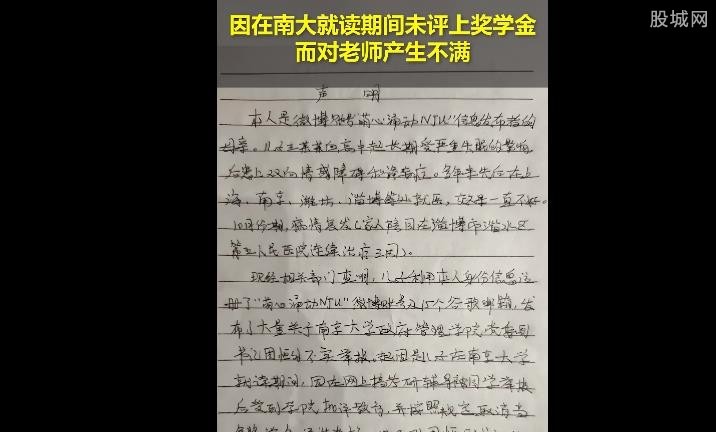 因在南大就读期间未评上奖学金
而对老师产生不满
股城网
声 明
本人是微博账号"萌心涌动NJU"信息发布者的
母亲。儿子王某某自高中起长期受严重失眠的影响
后患上双向情感障碍和躁狂症。多年来先后在上
海、南京、潍坊、淄博等地就医，效果一直不好。
10月份期，病情复发(家人陪同在淄博市淄水区
第三人民医院连续治疗三周)。
现经相关部门查明，儿子利用本人身份信息注
册了"萌心涌动NJU"微博账号及15个谷歌邮箱，发
布了大量关于南京大学政府管理学院党委副
书记 不实举报。起因是儿子在南京大学
就读期间，因在网上搞考研辅导被同学举报
后受到学院批评教育，并按照规定取消当